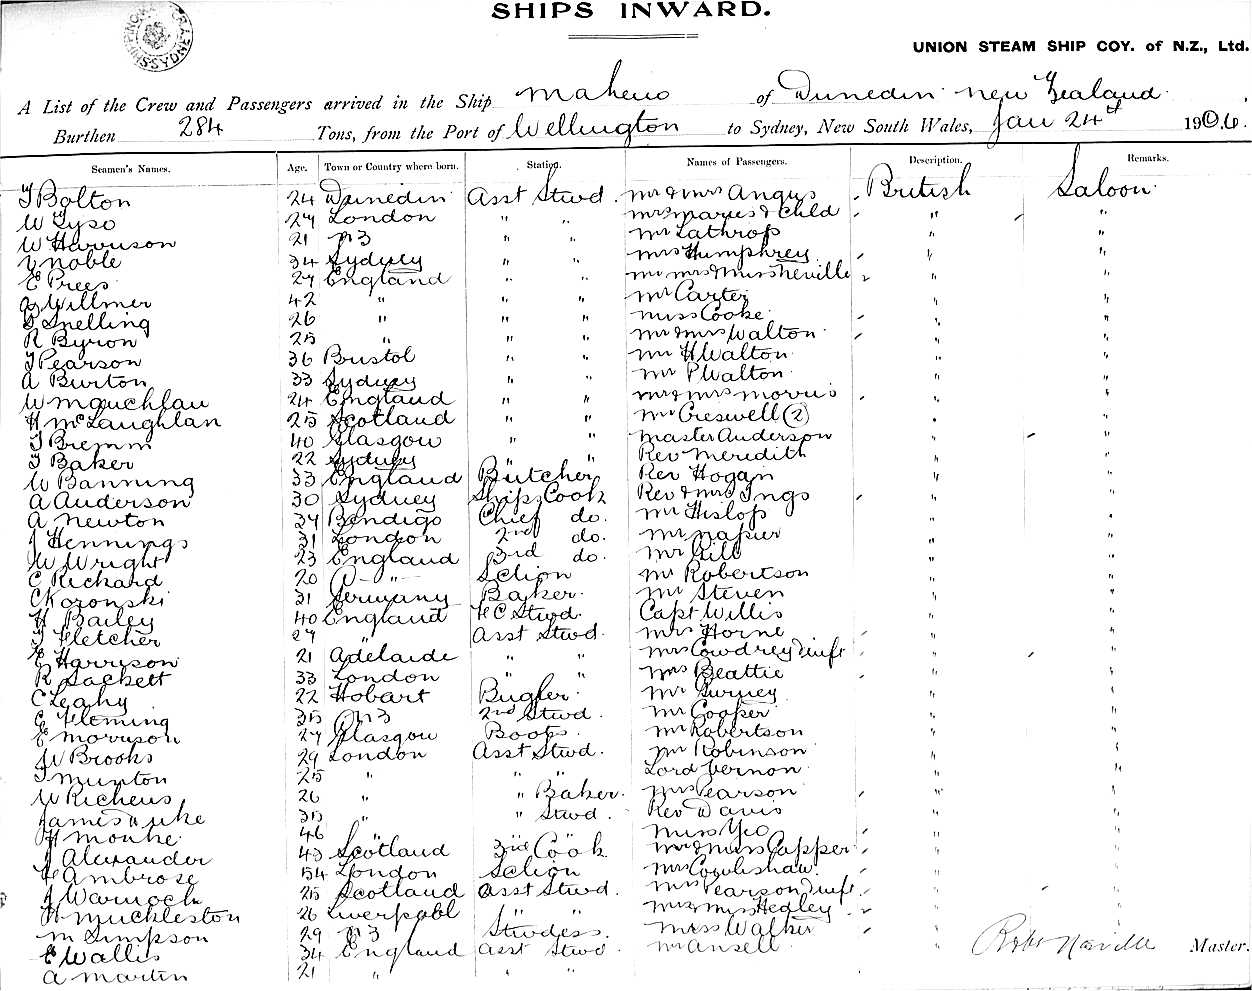 SHIPS INWARD.
UNION STEAM SHIP COY. of N.Z., Ltd.
A List of the Crew and Passengers arrived in the Ship Maheno of Dunedin New Zealand
Burthen 284 Tons, from the Port of Wellington to Sydney, New South Wales, Jan 24th 1906.
Seamen's Names. Age. Town or Country where born. Station. Names of Passengers. Description. Remarks.
T Bolton 24 Dunedin Asst Stwd. Mr & Mrs Angus British Saloon
W Tyso 27 London " " & Child " "
W Harrison 21 NZ " " Mr Lathrop " "
V Noble 34 Sydney " " Mrs Humphrey " "
E Prees 27 England " " Mr Mrs & Miss Neville " "
Willmer 42 " " " Mr Carter " "
S Snelling 26 " " " Miss Cooke " "
R Byron 25 " " " Mr & Mrs Walton " "
T Pearson 36 Bristol " " Mr H Walton " "
A Burton 33 Sydney " " Mr P Walton " "
W 24 England " " Mr & Mrs Morris " "
H McLaughlan 25 Scotland " " Creswell (2) " "
T Bremm 40 Glasgow " " Master Anderson " "
T Baker 22 Sydney " " Rev Meredith " "
W Banning 33 England Butcher Rev Hogan " "
A Anderson 30 Sydney Ships Cook Rev & Mrs Ings " "
A Newton 34 Bendigo Chief do. Mr Hislop " "
J Hennings 31 London 2nd do. Mr Napier " "
W Wright 23 England 3rd do. Mr Gill " "
C Richard 20 " Sclion Mr Robertson " "
C Koronski 31 Germany Baker Mr Steven " "
H Bailey 40 England Stwd. Capt Willis " "
T Fletcher 27 " Asst Stwd. Mrs Horne " "
E Harrison 21 Adelaide " " Mrs Cowdrey & Inft " "
R Sackett 33 London " " Mrs Beattie " "
C Leahy 22 Hobart Bugler Mr Gurney " "
E Fleming 35 NZ 2nd Stwd. Mr Cooper " "
E Morrison 27 Glasgow Boots. Mr Robertson " "
W Brooks 29 London Asst Stwd. Mr Robinson " "
T Munton 25 " " " Lord Vernon " "
W Richens 26 " " Baker. Mrs Pearson " "
James Duke 35 " " Stwd. Rev Davis " "
H Monke 46 " " " Miss Yeo " "
J Alexander 43 Scotland 3rd Cook Mr & Miss Capper " "
Ambrose 54 London Sclion Mrs " "
J Warnock 25 Scotland Asst Stwd. Mrs Pearson & Inft " "
H Muckleston 26 Liverpool " " Hedley " "
M Simpson 29 NZ Stwdess. Miss Walker " "
E Wallis 34 England Asst Stwd Mr Ansell " Master.
A Martin 21 " " "